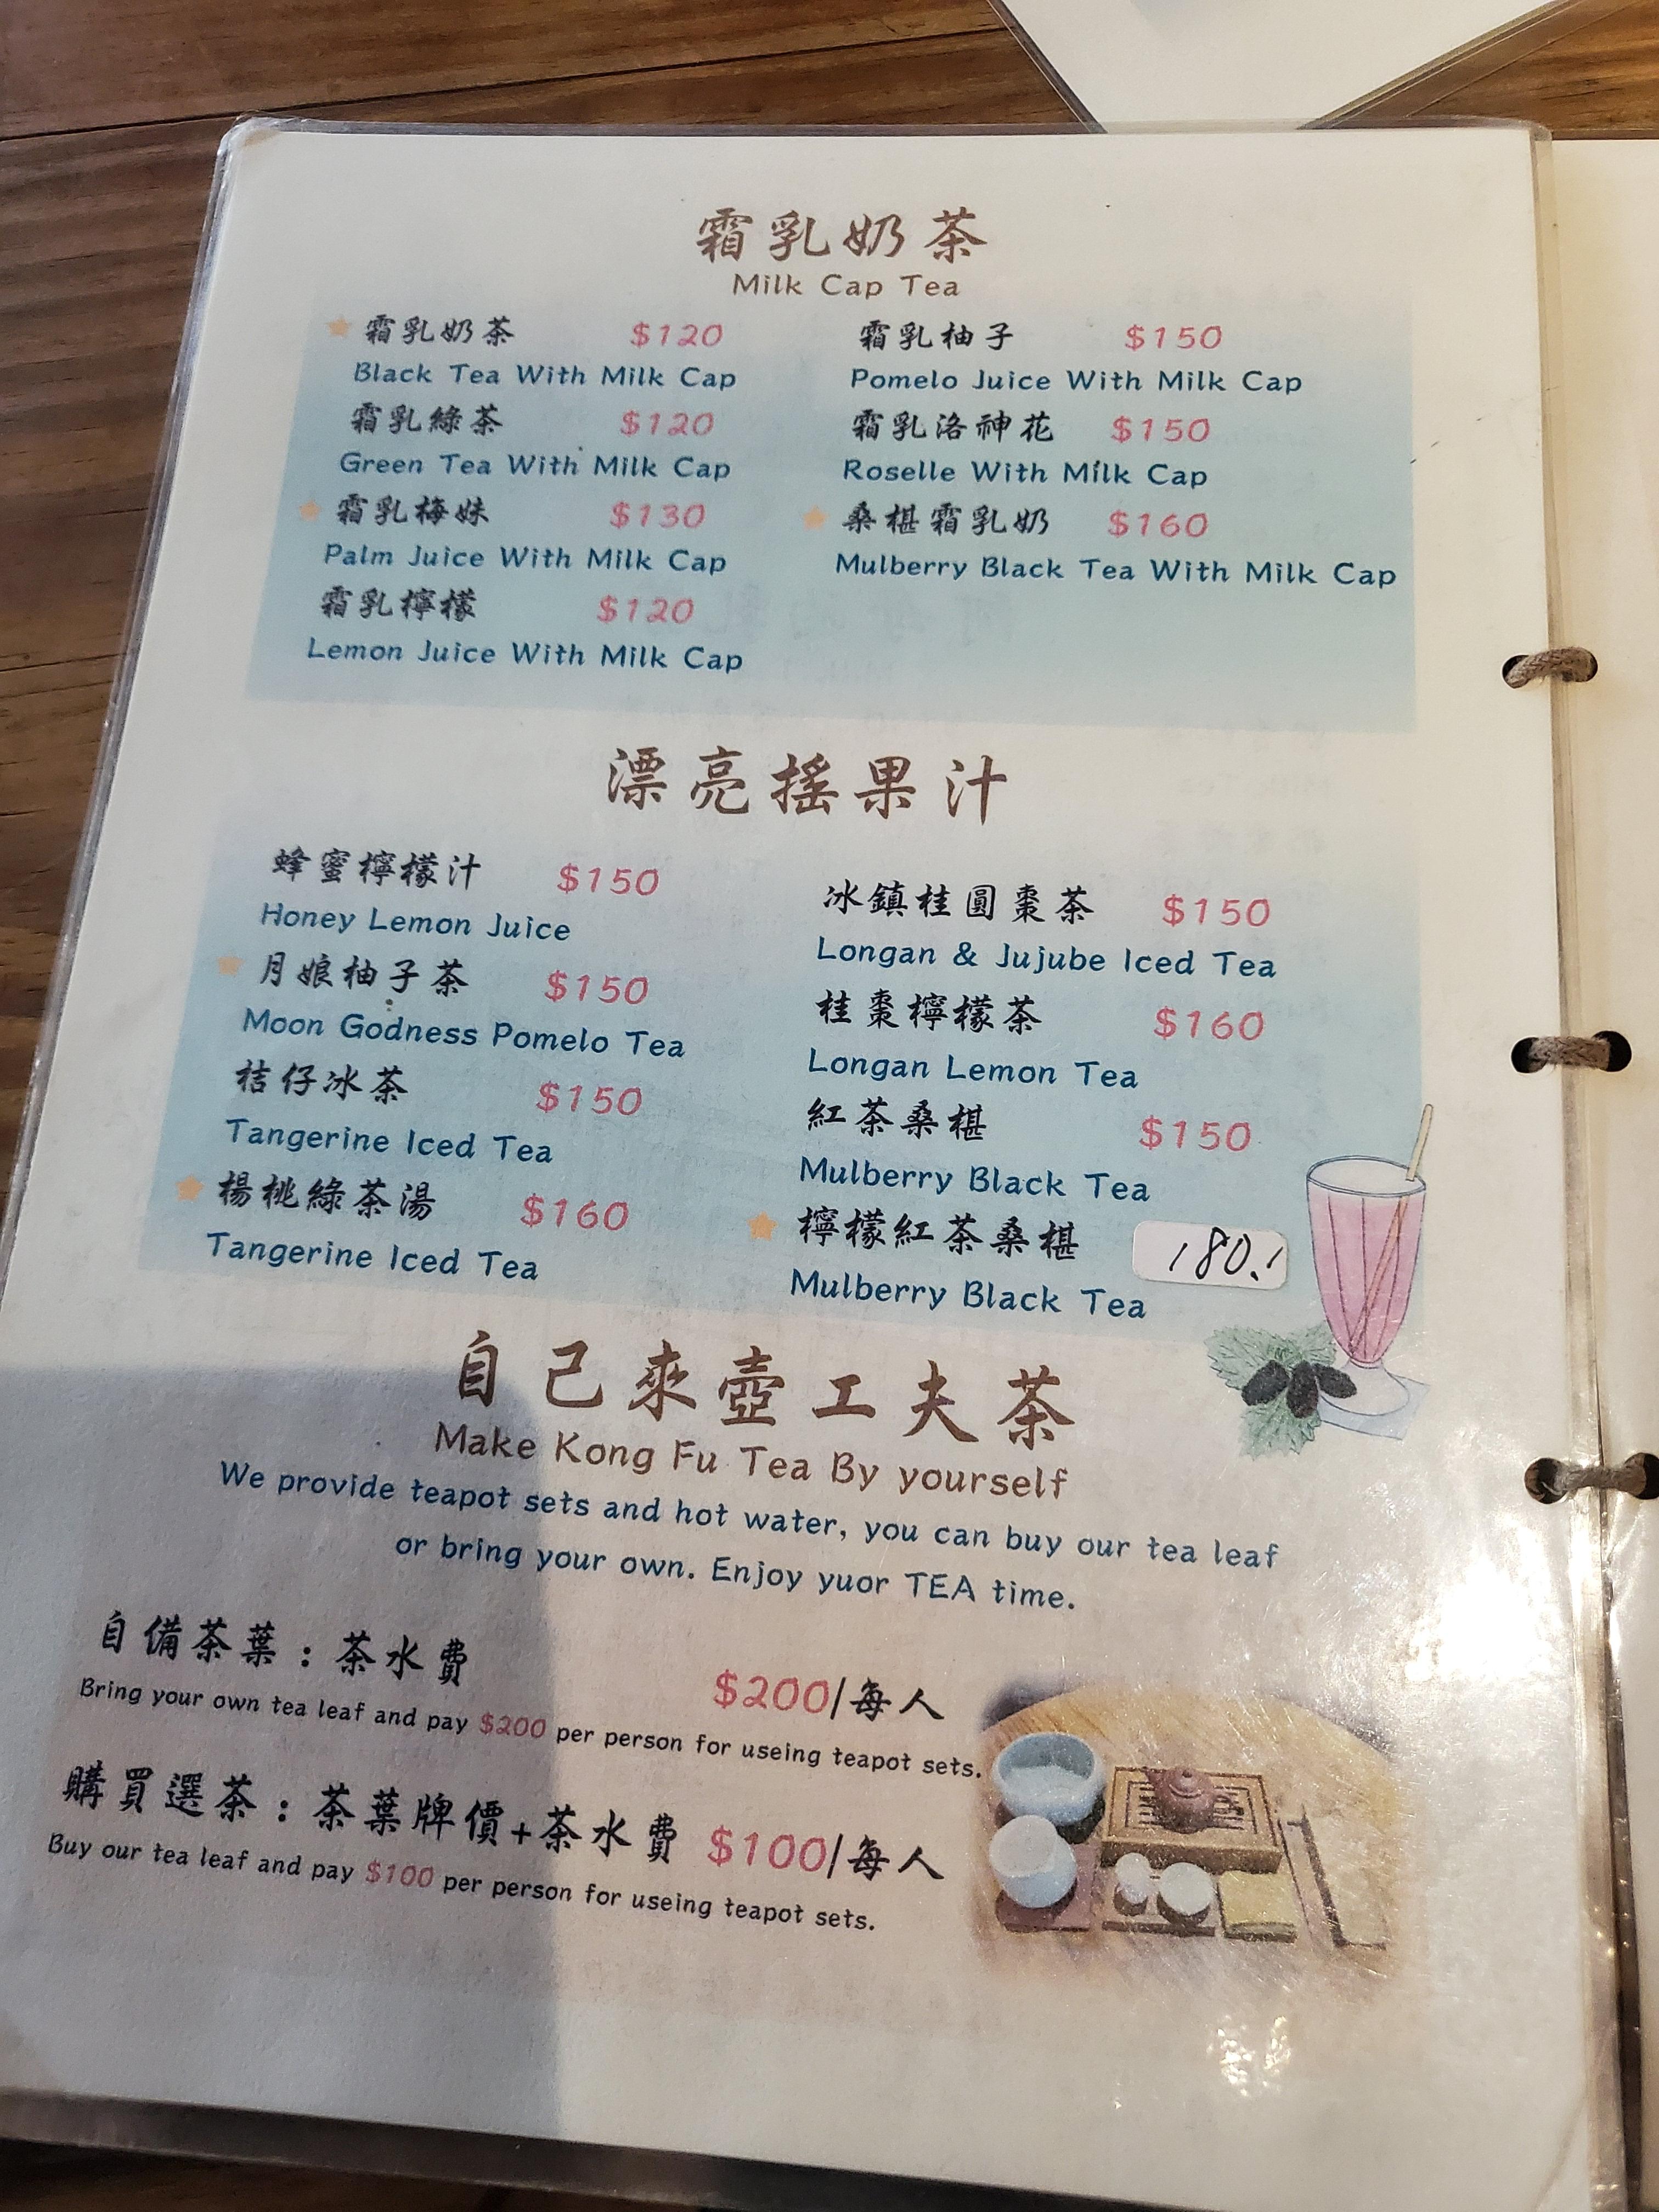 霜乳奶茶
Milk Cap Tea
霜乳奶茶 $120
Black Tea With Milk Cap
霜乳綠茶 $120
Green Tea With Milk Cap
霜乳梅妹 $130
Palm Juice With Milk Cap
霜乳檸檬 $120
Lemon Juice With Milk Cap
霜乳柚子 $150
Pomelo Juice With Milk Cap
霜乳洛神花 $150
Roselle With Milk Cap
桑椹霜乳奶 $160
Mulberry Black Tea With Milk Cap
漂亮搖果汁
蜂蜜檸檬汁 $150
Honey Lemon Juice
月娘柚子茶 $150
Moon Godness Pomelo Tea
桔仔冰茶 $150
Tangerine Iced Tea
楊桃綠茶湯 $160
Tangerine Iced Tea
冰鎮桂圓棗茶 $150
Longan & Jujube Iced Tea
桂棗檸檬茶 $160
Longan Lemon Tea
紅茶桑椹 $150
Mulberry Black Tea
檸檬紅茶桑椹 180.!
Mulberry Black Tea
自己來壺工夫茶
Make Kong Fu Tea By yourself
We provide teapot sets and hot water, you can buy our tea leaf
or bring your own. Enjoy yuor TEA time.
自備茶葉：茶水費 $200/每人
Bring your own tea leaf and pay $200 per person for useing teapot sets.
購買選茶：茶葉牌價+茶水費 $100/每人
Buy our tea leaf and pay $100 per person for useing teapot sets.